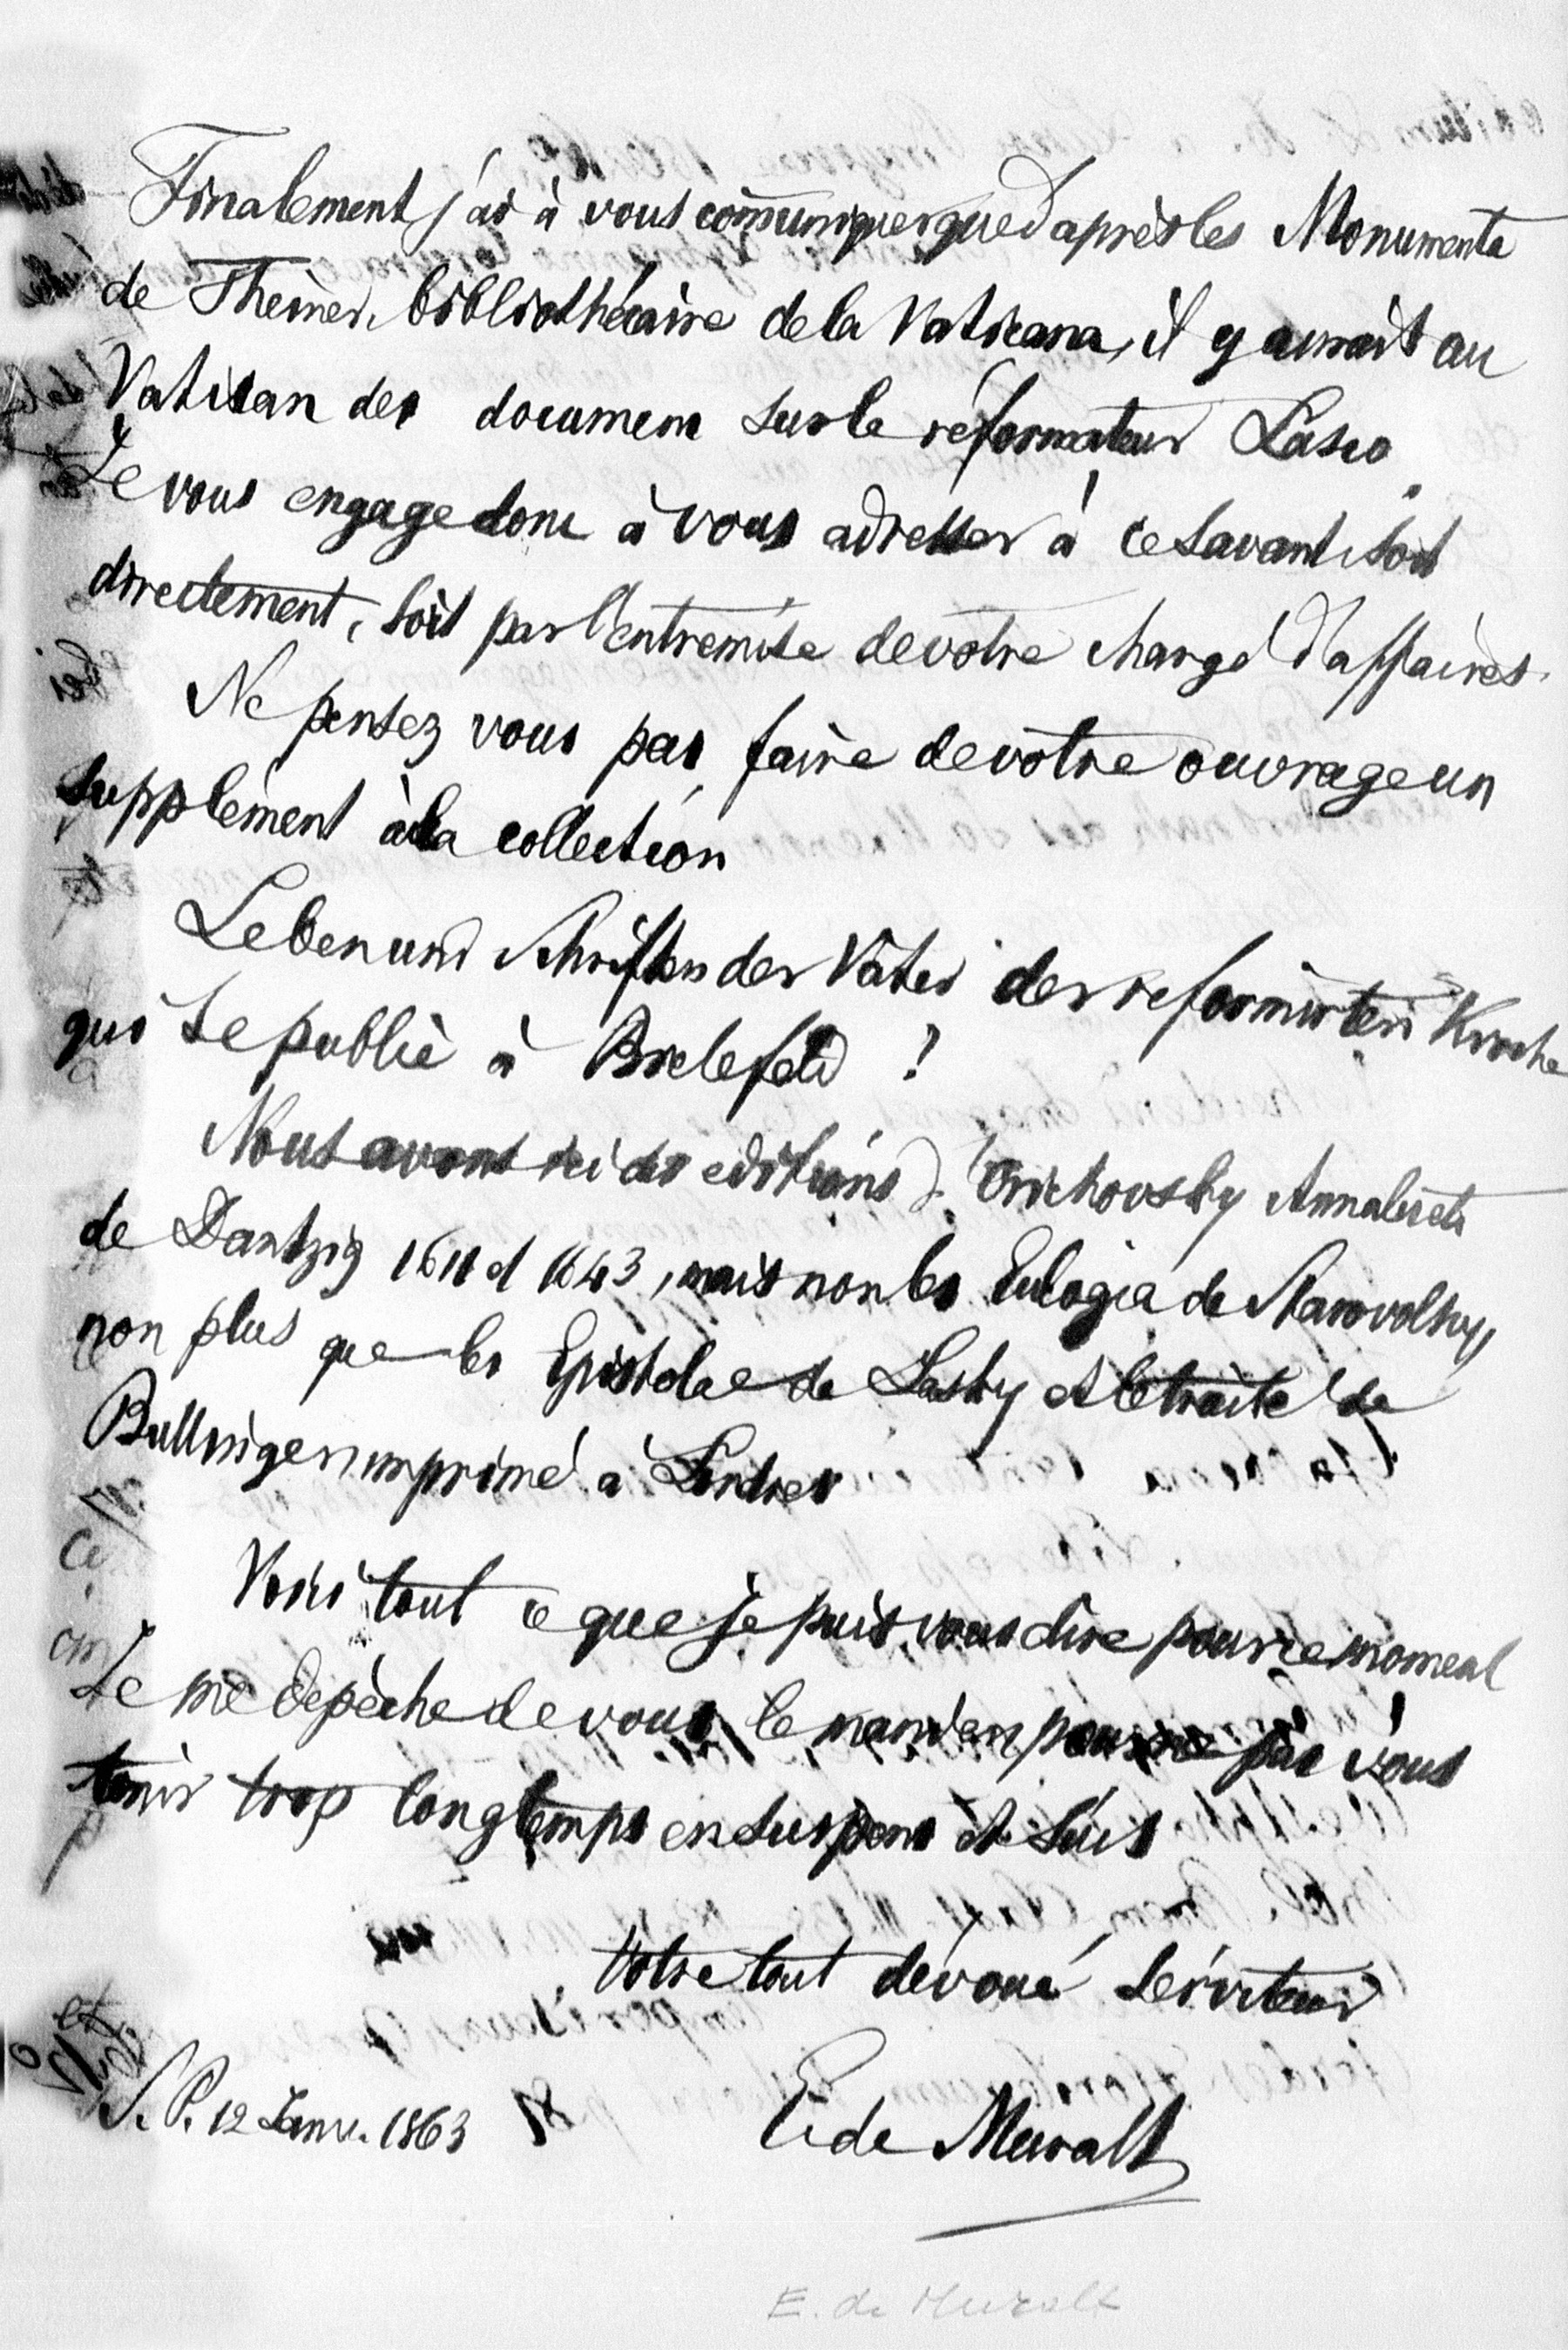 Finalement j'ai à vous communiquer que d'après les Monumenta
de Theiner, bibliothécaire de la Vaticana, il y aurait au
Vatican des documens sur le réformateur Lasco.
Je vous engage donc à vous adresser à ce savant, soit
directement, soit par l'entremise de votre chargé d'affaires.
Ne pensez vous pas faire de votre ouvrage un
supplément à la collection
Leben und Schriften der Väter der reformirten Kirche
qui se publie à Bielefeld ?
Nous avons ici des editions d'Orichovsky Annales etc
de Dantzig 1611 et 1643, mais non les Eulogia de Starovolsky,
non plus que les Epistolae de Lasky et le traité de
Bullinger imprimé à Londres
Voici tout ce que je puis vous dire pour ce moment
Je me dépèche de vous le mander pour ne pas vous
tenir trop longtemps en suspens et suis
Votre tout dévoué serviteur
S. P. 12 Janv. 1863 E. de Muralt
E. de Muralt